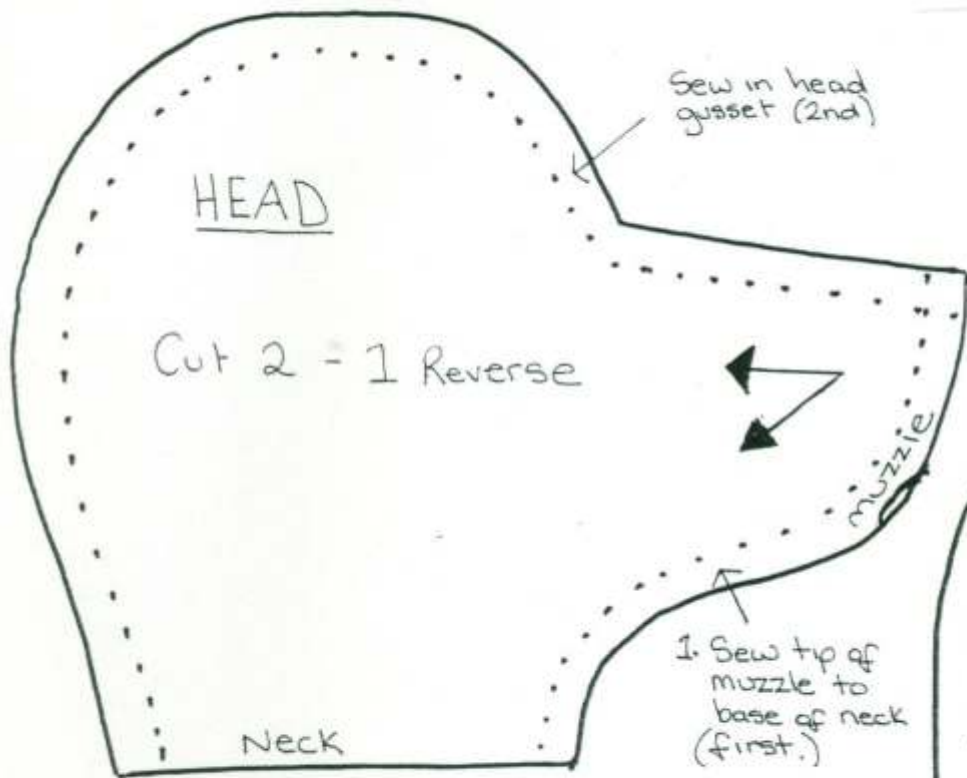 Sew in head
gusset (2nd)
HEAD
Cut 2 - 1 Reverse
muzzle
1. Sew tip of
muzzle to
base of neck
(first.)
Neck